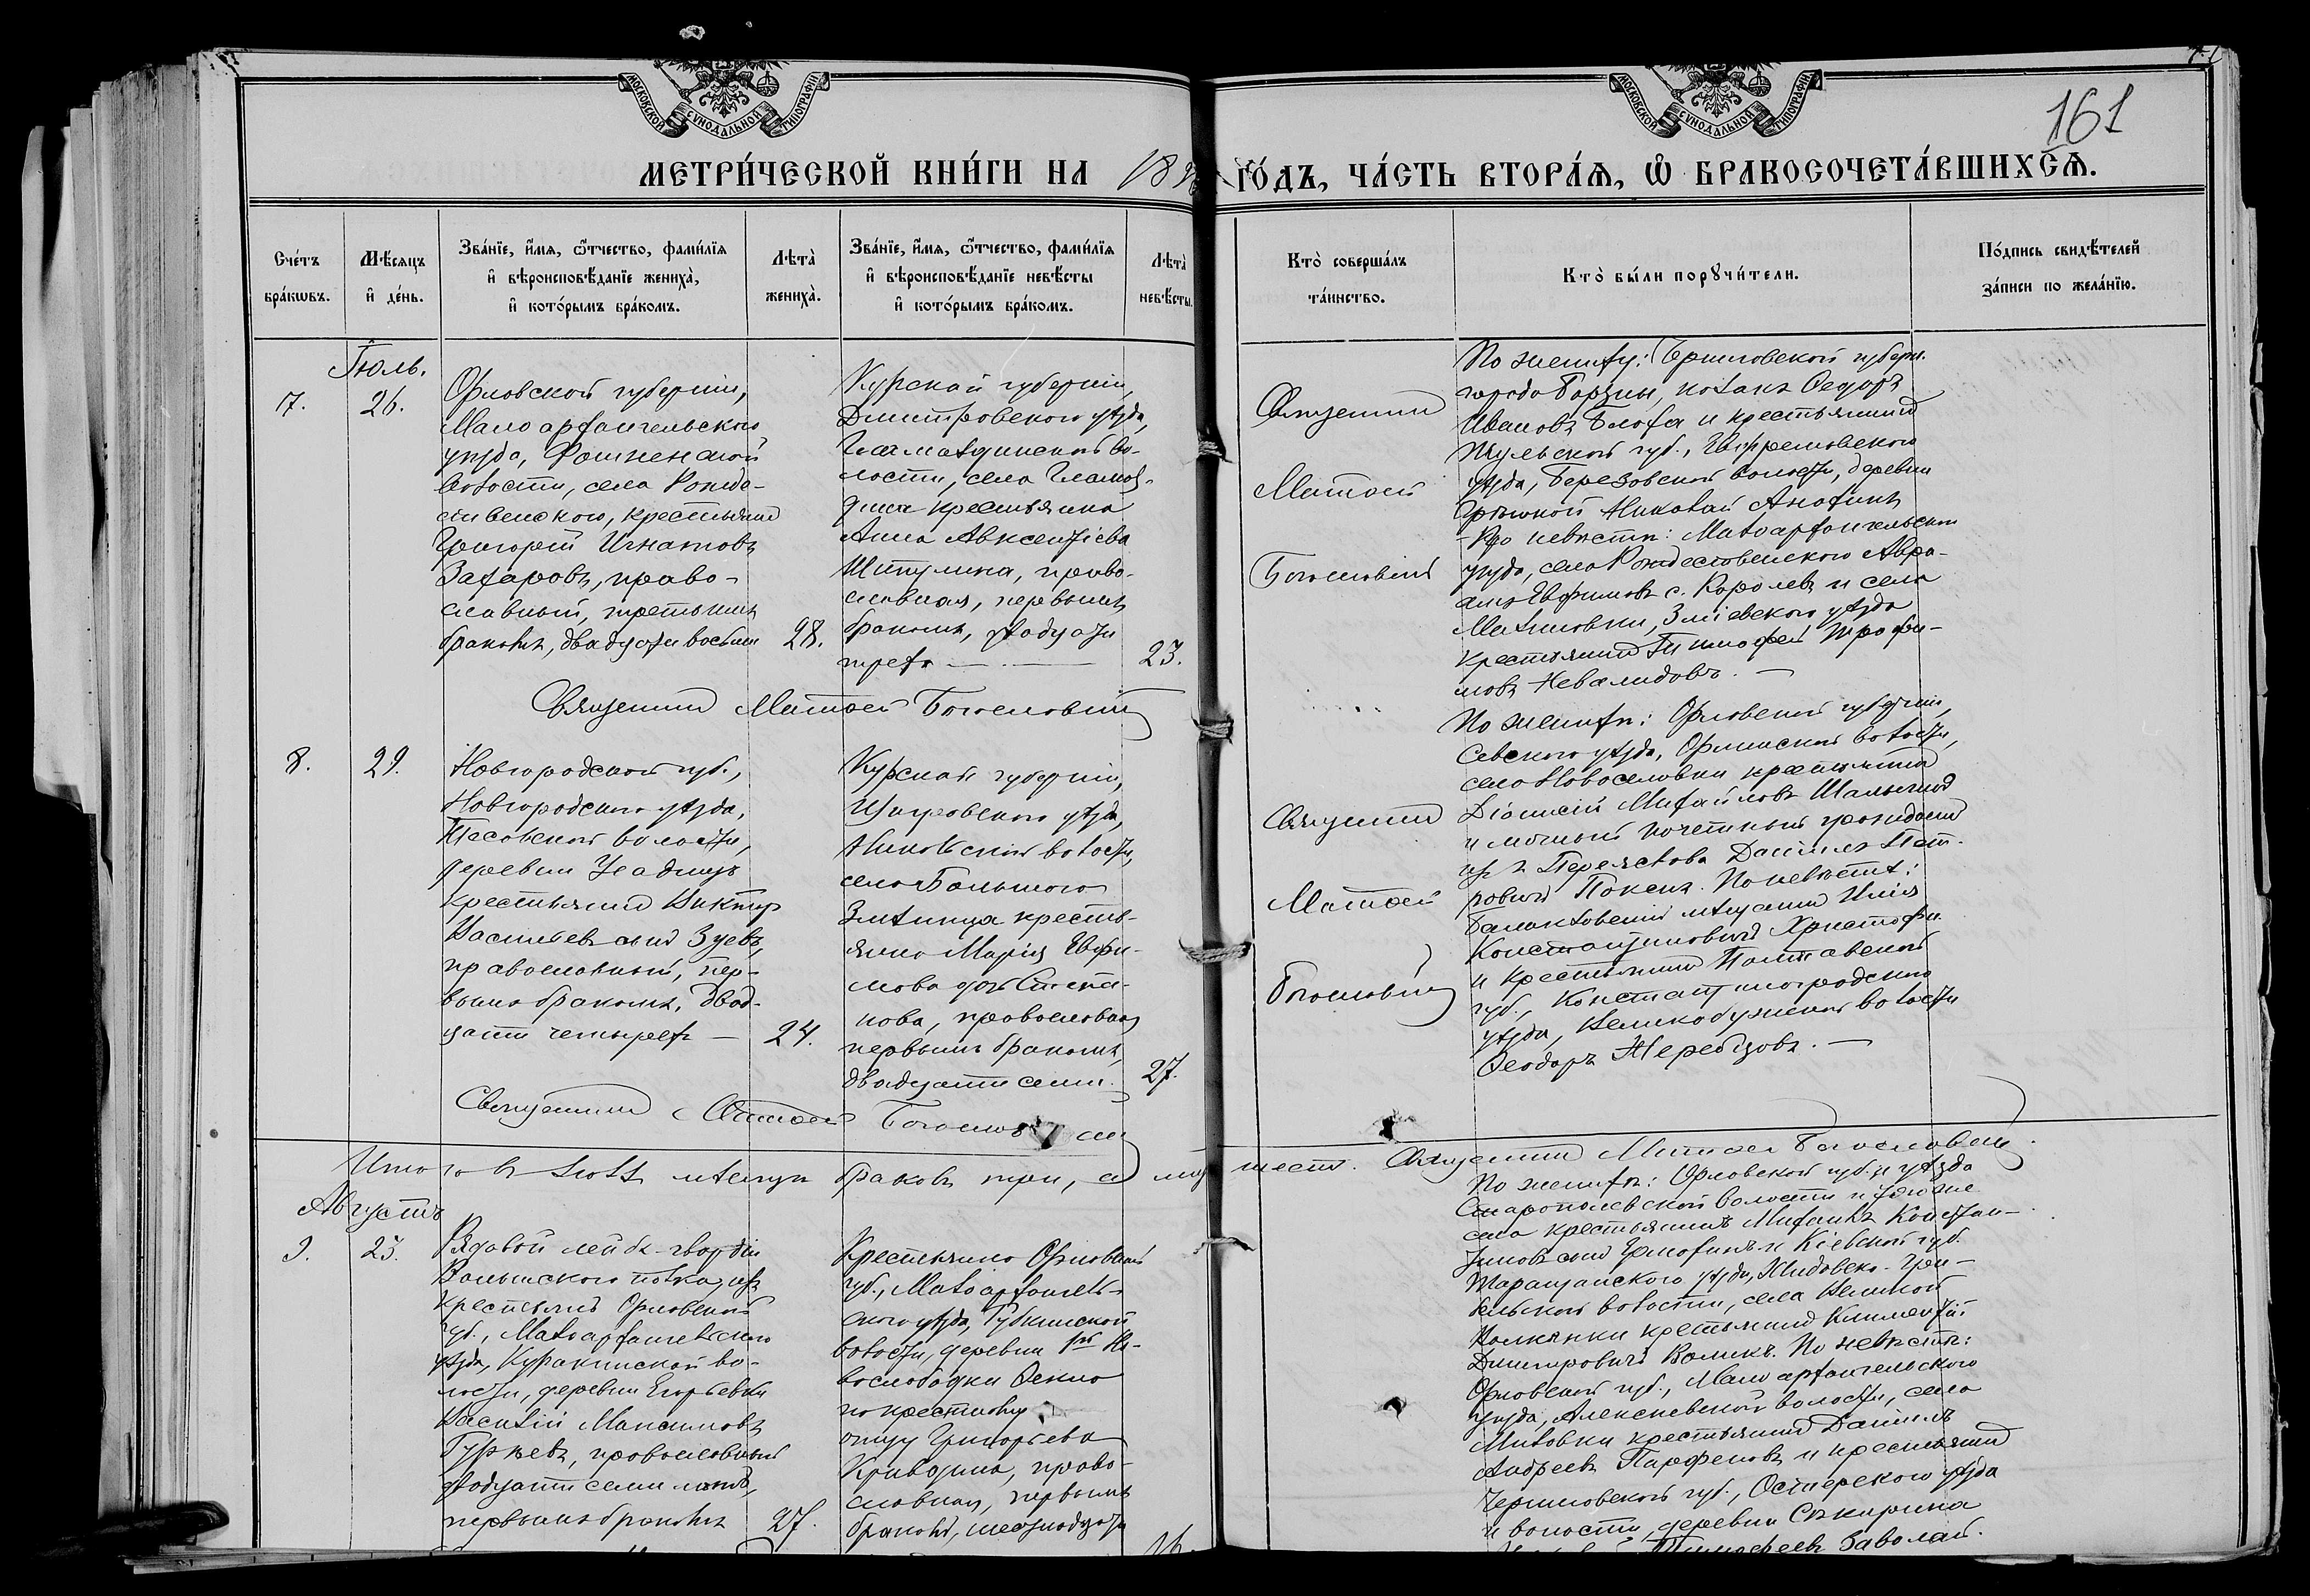 161
МОСКОВСКОЙ СѴНОДАЛЬНОЙ ТИПОГРАФІИ
МОСКОВСКОЙ СѴНОДАЛЬНОЙ ТИПОГРАФІИ
МЕТРИ́ЧЕСКОЙ КНИ́ГИ НА 18
ГО́ДЪ, ЧА́СТЬ ВТОРА́Ѧ, Ѽ БРАКОСОЧЕТА́ВШИХСѦ.
Сче́тъ
бра́кѡвъ.
Мѣ́сяцъ
и҆ де́нь.
Зва́нїе, и҆́мѧ, ѻ҆́тчество, фами́лїѧ
и҆ вѣроисповѣ́данїе жениха̀,
и҆ кото́рымъ бра́комъ.
Лѣта̀
жениха̀.
Зва́нїе, и҆́мѧ, ѻ҆́тчество, фами́лїѧ
и҆ вѣроисповѣ́данїе невѣ́сты
и҆ кото́рымъ бра́комъ.
Лѣта̀
невѣ́сты.
Кто̀ соверша́лъ
та́инство.
Кто̀ бы́ли порꙋчи́тели.
По́дпись свидѣ́телей
за́писи по жела́нїю.
Іюль.
7.
26.
Орловской губерніи,
Мало архангельскаго
уѣзда,
волости, села Рожде-
ственскаго, крестьянинъ
Григорій Игнатовъ
Захаровъ, право-
славный, третьимъ
бракомъ, двадцати восьми
28.
Курской губерніи,
Дмитровскаго уѣзда,
во-
лости, села Гламаз-
дина крестьянка
Анна Авксентіева
Шипулина, право-
славная, первымъ
бракомъ, двадцати
трехъ
23.
Священникъ
Матѳей
Богословскій
По женихѣ: Черниговской губерн.
города Борзны, козакъ Ѳедоръ
Ивановъ Блоха и крестьянинъ
Тульской губ., Ефремовскаго
уѣзда, Березовской волости, деревни
Николай
По невѣстѣ: Малоархангельскаго
уѣзда, села Рождественскаго Авра-
амъ Ефимовъ с. Королевъ и села
Змiевскаго уѣзда
крестьянинъ Тимофей Трофи-
мовъ Невалидовъ.
Священникъ Матѳей Богословскій
8.
29.
Новгородской губ.,
Новгородскаго уѣзда,
Тесовской волости,
деревни Усадищъ
крестьянинъ Викторъ
Васильевъ сынъ Зуевъ,
православный, пер-
вымъ бракомъ, двад-
цати четырехъ
24.
Курской губерніи,
Щигровскаго уѣзда,
Никольской волости,
села Большого
Змѣинца кресть-
янка Марія Ефи-
мова дочь Степа-
нова, православная
первымъ бракомъ,
двадцати семи
27.
Священникъ
Матѳей
Богословскій
По женихѣ: Орловской губерніи,
Севскаго уѣзда, волости,
села Новоселовки крестьянинъ
Діонисій Михайловъ
и личный почетный гражданинъ
изъ Переяслова Даніилъ Пет-
ровичъ По невѣстѣ:
Балаклавскій мѣщанинъ Илія
Константиновичъ Христофи
и крестьянинъ Полтавской
губ., Константиноградскаго
уѣзда, волости
Ѳеодоръ Жеребцовъ.
Священникъ Матѳей Богословскій
Итого въ іюлѣ мѣсяцѣ браковъ три, а
шесть. Священникъ Матѳей Богословскій.
Августъ
9.
23.
Рядовой лейбъ-гвардіи
Волынскаго полка, изъ
крестьянъ Орловской
губ., Малоархангельскаго
уѣзда, Куракинской во-
лости, деревни Егорьевки
Василій Максимовъ
Гурѣевъ, православный
двадцати семи лѣтъ,
первымъ бракомъ
27.
Крестьянка Орловской
губ., Малоархангель-
скаго уѣзда, Губкинской
волости, деревни 1ой Но-
вослободки Ѳекла
по крестному
отцу Григорьева
право-
славная, первымъ
бракомъ, шестнадцати
16.
По женихѣ: Орловской губ. и уѣзда
волости и того же
села крестьянинъ Михаилъ Констан-
тиновъ сынъ Ермохинъ и Кіевской губ.
Таращанскаго уѣзда, Жидовско-Гре-
бельской волости, села Великой
Вольянки крестьянинъ Климентій
Дмитровичъ Воликъ. По невѣстѣ:
Орловской губ., Мало архангельскаго
уѣзда, Алексѣевской волости, села
Миловки крестьянинъ Даніилъ
Андреевъ Парфеновъ и крестьянинъ
Черниговской губ., Остерскаго уѣзда
и волости, деревни
Тимофеевъ Заволай.